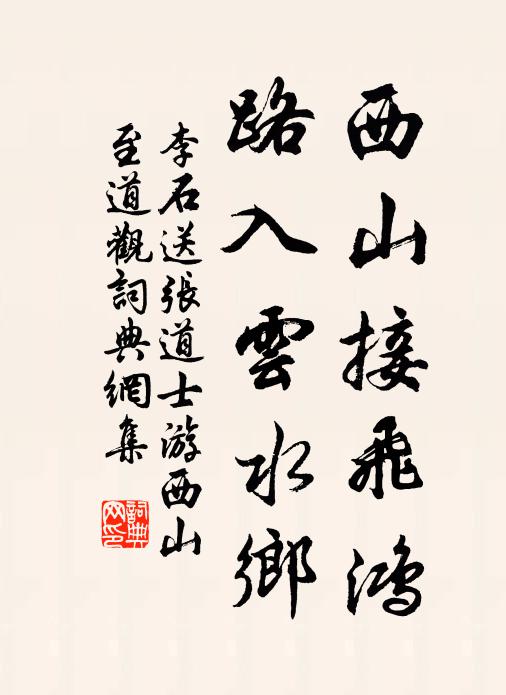 西山接飛鴻
路入雲水鄉
李石送張道士游西山
至道觀詞典網集
詞典
网印